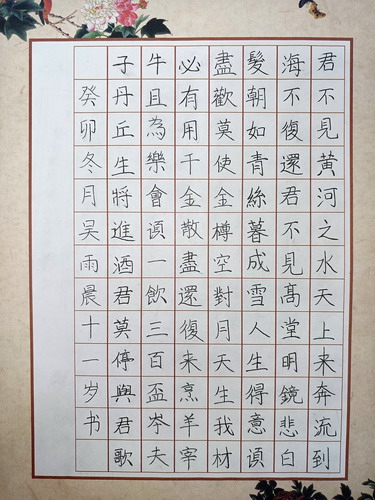 君不見黃河之水天上来奔流到
海不復還君不見髙堂明鏡悲白
髮朝如青絲暮成雪人生得意須
盡歡莫使金樽空對月天生我材
必有用千金散盡還復来烹羊宰
牛且為樂會須一飲三百盃岑夫
子丹丘生將進酒君莫停與君歌
癸卯冬月吴雨晨十一岁书